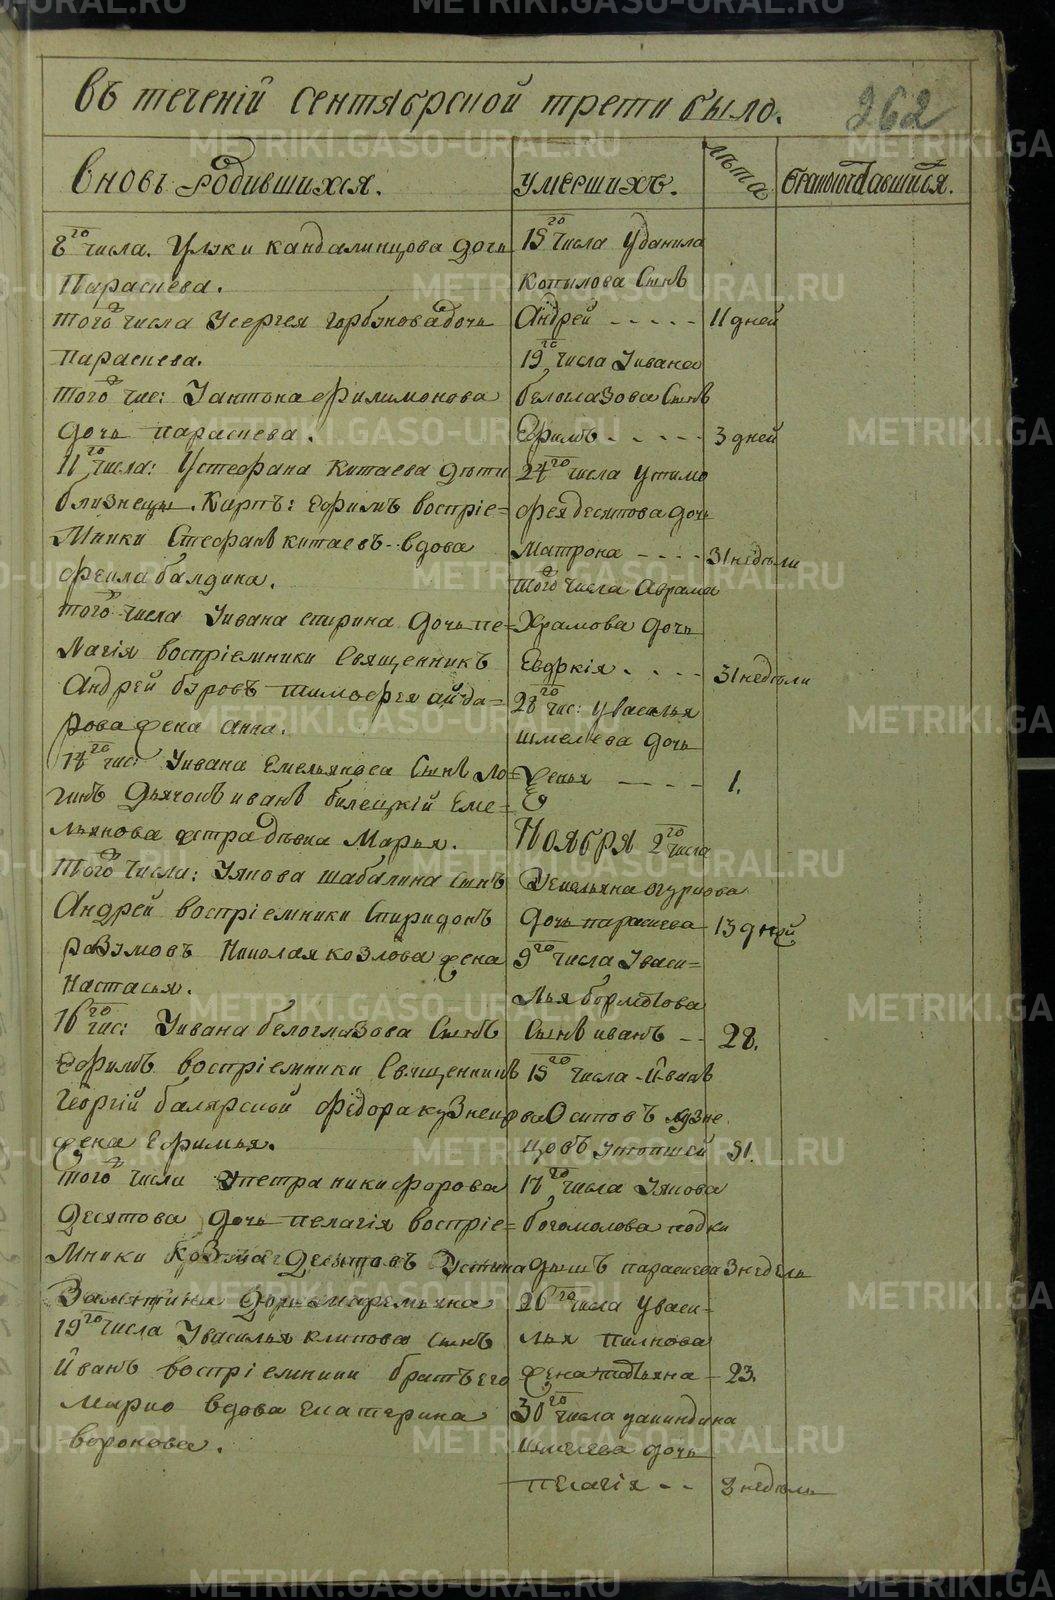 въ теченіи сентябрской трети было. 262
вновь родившихся.
8го числа. Улуки кандалинцова дочь
Параскева.
того числа Усергея горбунова дочь
параскева.
того чис: Уантона филимонова
дочь параскева.
11го числа: Устефана китаева дѣти
близнецы. Карпъ: ефимъ воспріе=
мники Стефанъ китаевъ вдова
балдина.
того числа Уивана спирина дочь пе=
лагія воспріемники Священникъ
Андрей буровъ тимофея айда=
рова жена анна.
14го чис: Уивана Емельянова Сынъ ло=
гинъ Дьячокъ иванъ билецкій Еме=
льянова Марья.
того числа: Уякова шабалина сынъ
Андрей воспріемники Спиридонъ
разумовъ Николая козлова жена
Настасья.
16го чис: Уивана белоглазова Сынъ
ефимъ воспріемники Священникъ
Георгій балярской Федора кузнецова
жена Ефимья.
того числа Упетра никифорова
десятова дочь пелагія воспріе=
мники Козма десятовъ Устина
Замятина дочь маремьяна
19го числа Увасилья климова сынъ
Иванъ воспріемники братъ его
марко вдова екатерина
воронова.
умершихъ. лѣта
15го числа Уданила
копылова Сынъ
Андрей - - - - - 11 дней
19го числа Уивана
белоглазова Сынъ
Ефимъ - - - - - 3 дней
24го числа Утимо
фея десятова дочь
Матрона - - - - 31 недѣли
того числа Аврама
Храмова дочь
Евдокія. - - - 31 недѣли
28го чис: Увасилья
шмелева дочь
- - - - 1.
Ноября 2го числа
Уемельяна огурцова
дочь параскева - 13 дней
9го числа Уваси=
лья бормотова
Сынъ иванъ - - 28.
15го числа Иванъ
Осиповъ кузне
цовъ утопшей 31.
17го числа Уякова
богомолова подки
дышъ параскева 3 недѣли
26го числа Уваси-
лья пилкова
жена татьяна - 23.
30го числа уакиндина
шмелева дочь
пелагія - - 3 недѣли